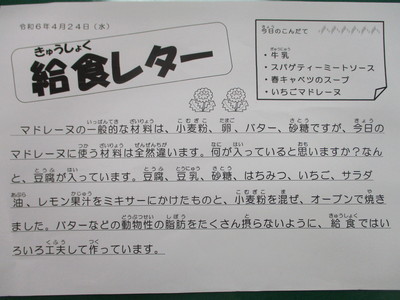 令和6年4月24日（水）
給食レター
きゅうしょく
今日のこんだて
・牛乳
・スパゲティーミートソース
・春キャベツのスープ
・いちごマドレーヌ
マドレーヌの一般的な材料は、小麦粉、卵、バター、砂糖ですが、今日の
マドレーヌに使う材料は全然違います。何が入っていると思いますか？なん
と、豆腐が入っています。豆腐、豆乳、砂糖、はちみつ、いちご、サラダ
油、レモン果汁をミキサーにかけたものと、小麦粉を混ぜ、オーブンで焼き
ました。バターなどの動物性の脂肪をたくさん摂らないように、給食ではい
ろいろ工夫して作っています。